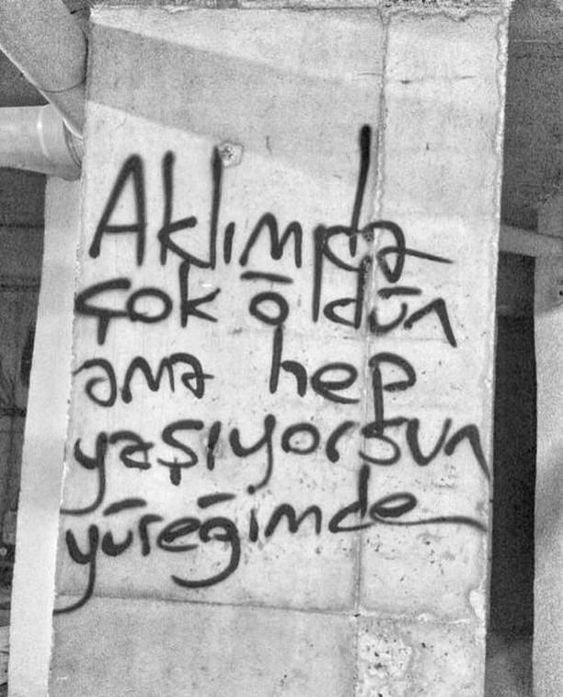 Aklımda
çok öldün
ama hep
yaşıyorsun
yüreğimde